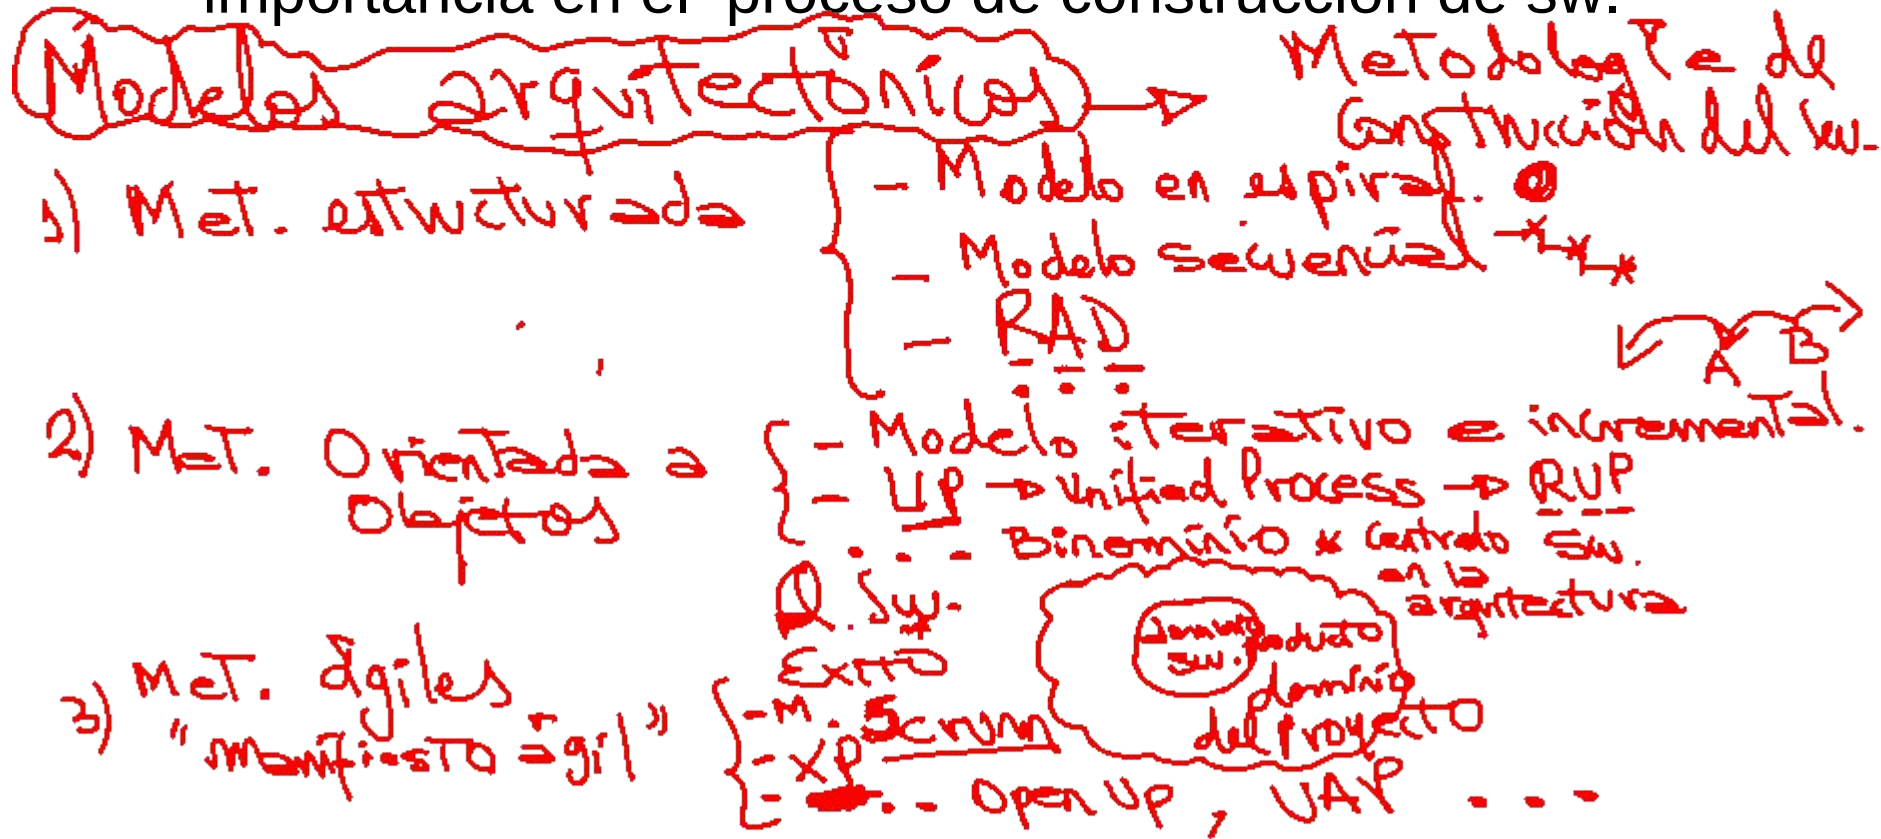 importancia en el proceso de construcción de sw.
Modelos arquitectónicos
Metodología de
Construcción del sw.
1) Met. estructurada
- Modelo en espiral.
- Modelo secuencial
- RAD
A B
2) Met. Orientada a
Objetos
- Modelo iterativo e incremental.
- UP → Unified Process → RUP
... - Binominio * Centrado SW.
en la
arquitectura
Q. Sw.
Exito
dominio
sw.
producto
dominio
del proyecto
3) Met. ágiles
"manifiesto ágil"
- M. Scrum
- XP
- .. - Open Up, UAP ...